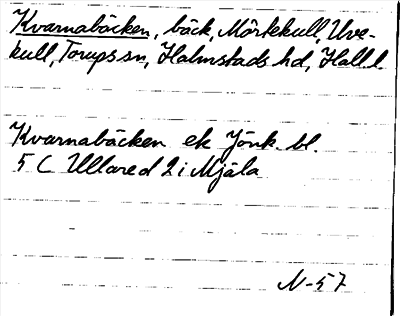 Kvarnabäcken, bäck, Mörkekull, Uve-
kull, Torups sn, Halmstads hd, Hall.l.
Kvarnabäcken ek Jönk. bl.
5 C Ullared 2 i Mjäla
N-57